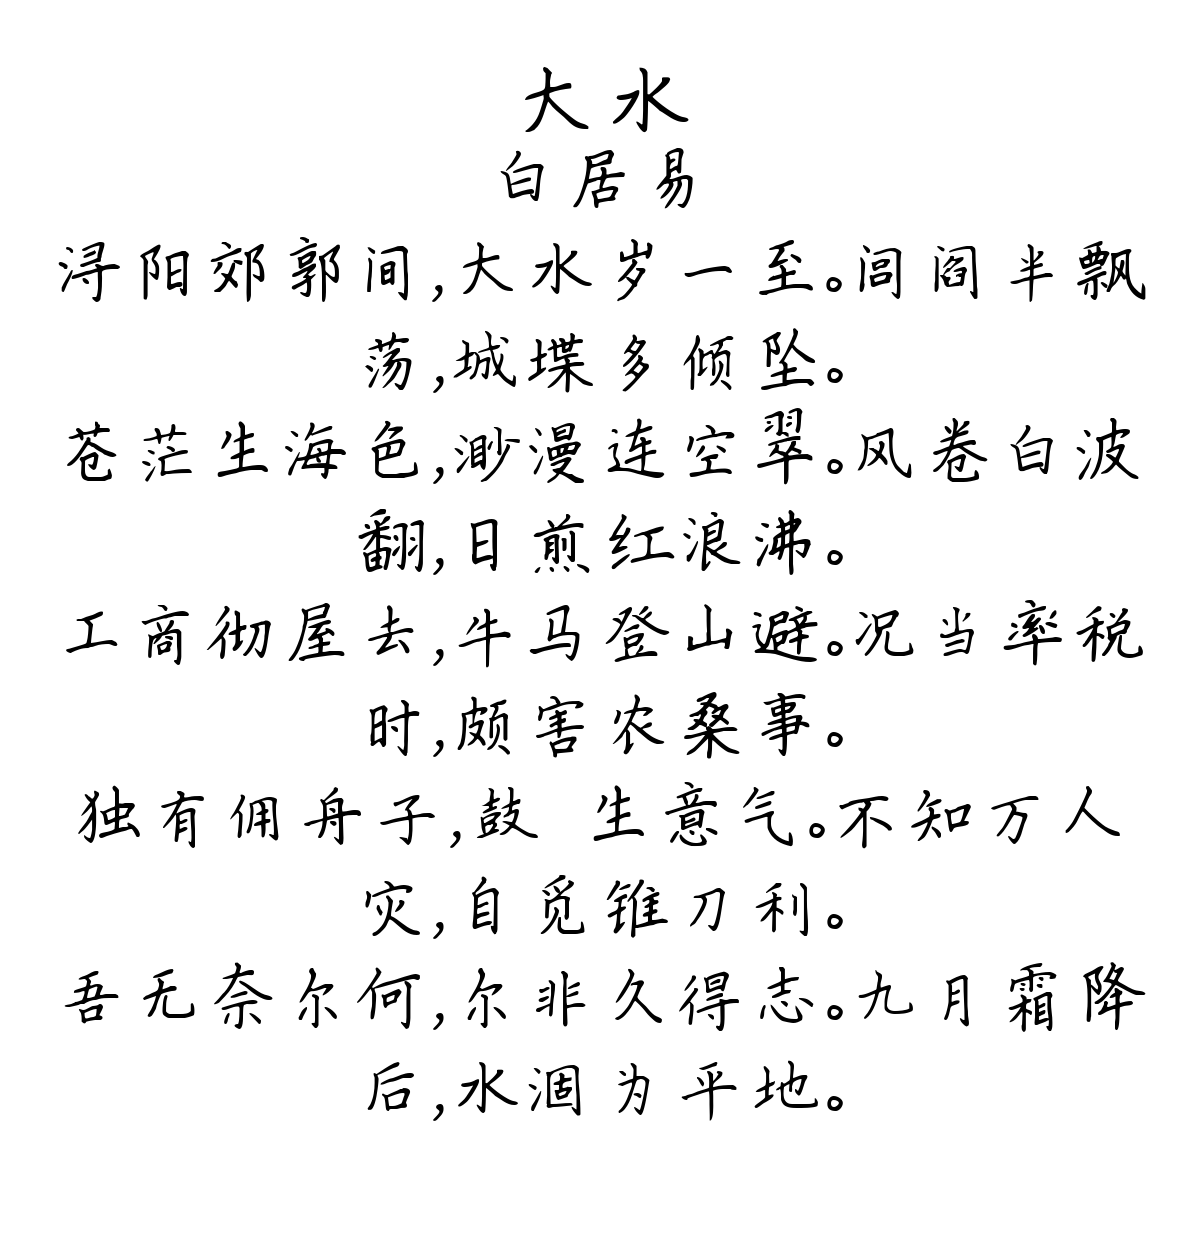 大水
白居易
浔阳郊郭间,大水岁一至。闾阎半飘
荡,城堞多倾坠。
苍茫生海色,渺漫连空翠。风卷白波
翻,日煎红浪沸。
工商彻屋去,牛马登山避。况当率税
时,颇害农桑事。
独有佣舟子,鼓 生意气。不知万人
灾,自觅锥刀利。
吾无奈尔何,尔非久得志。九月霜降
后,水涸为平地。